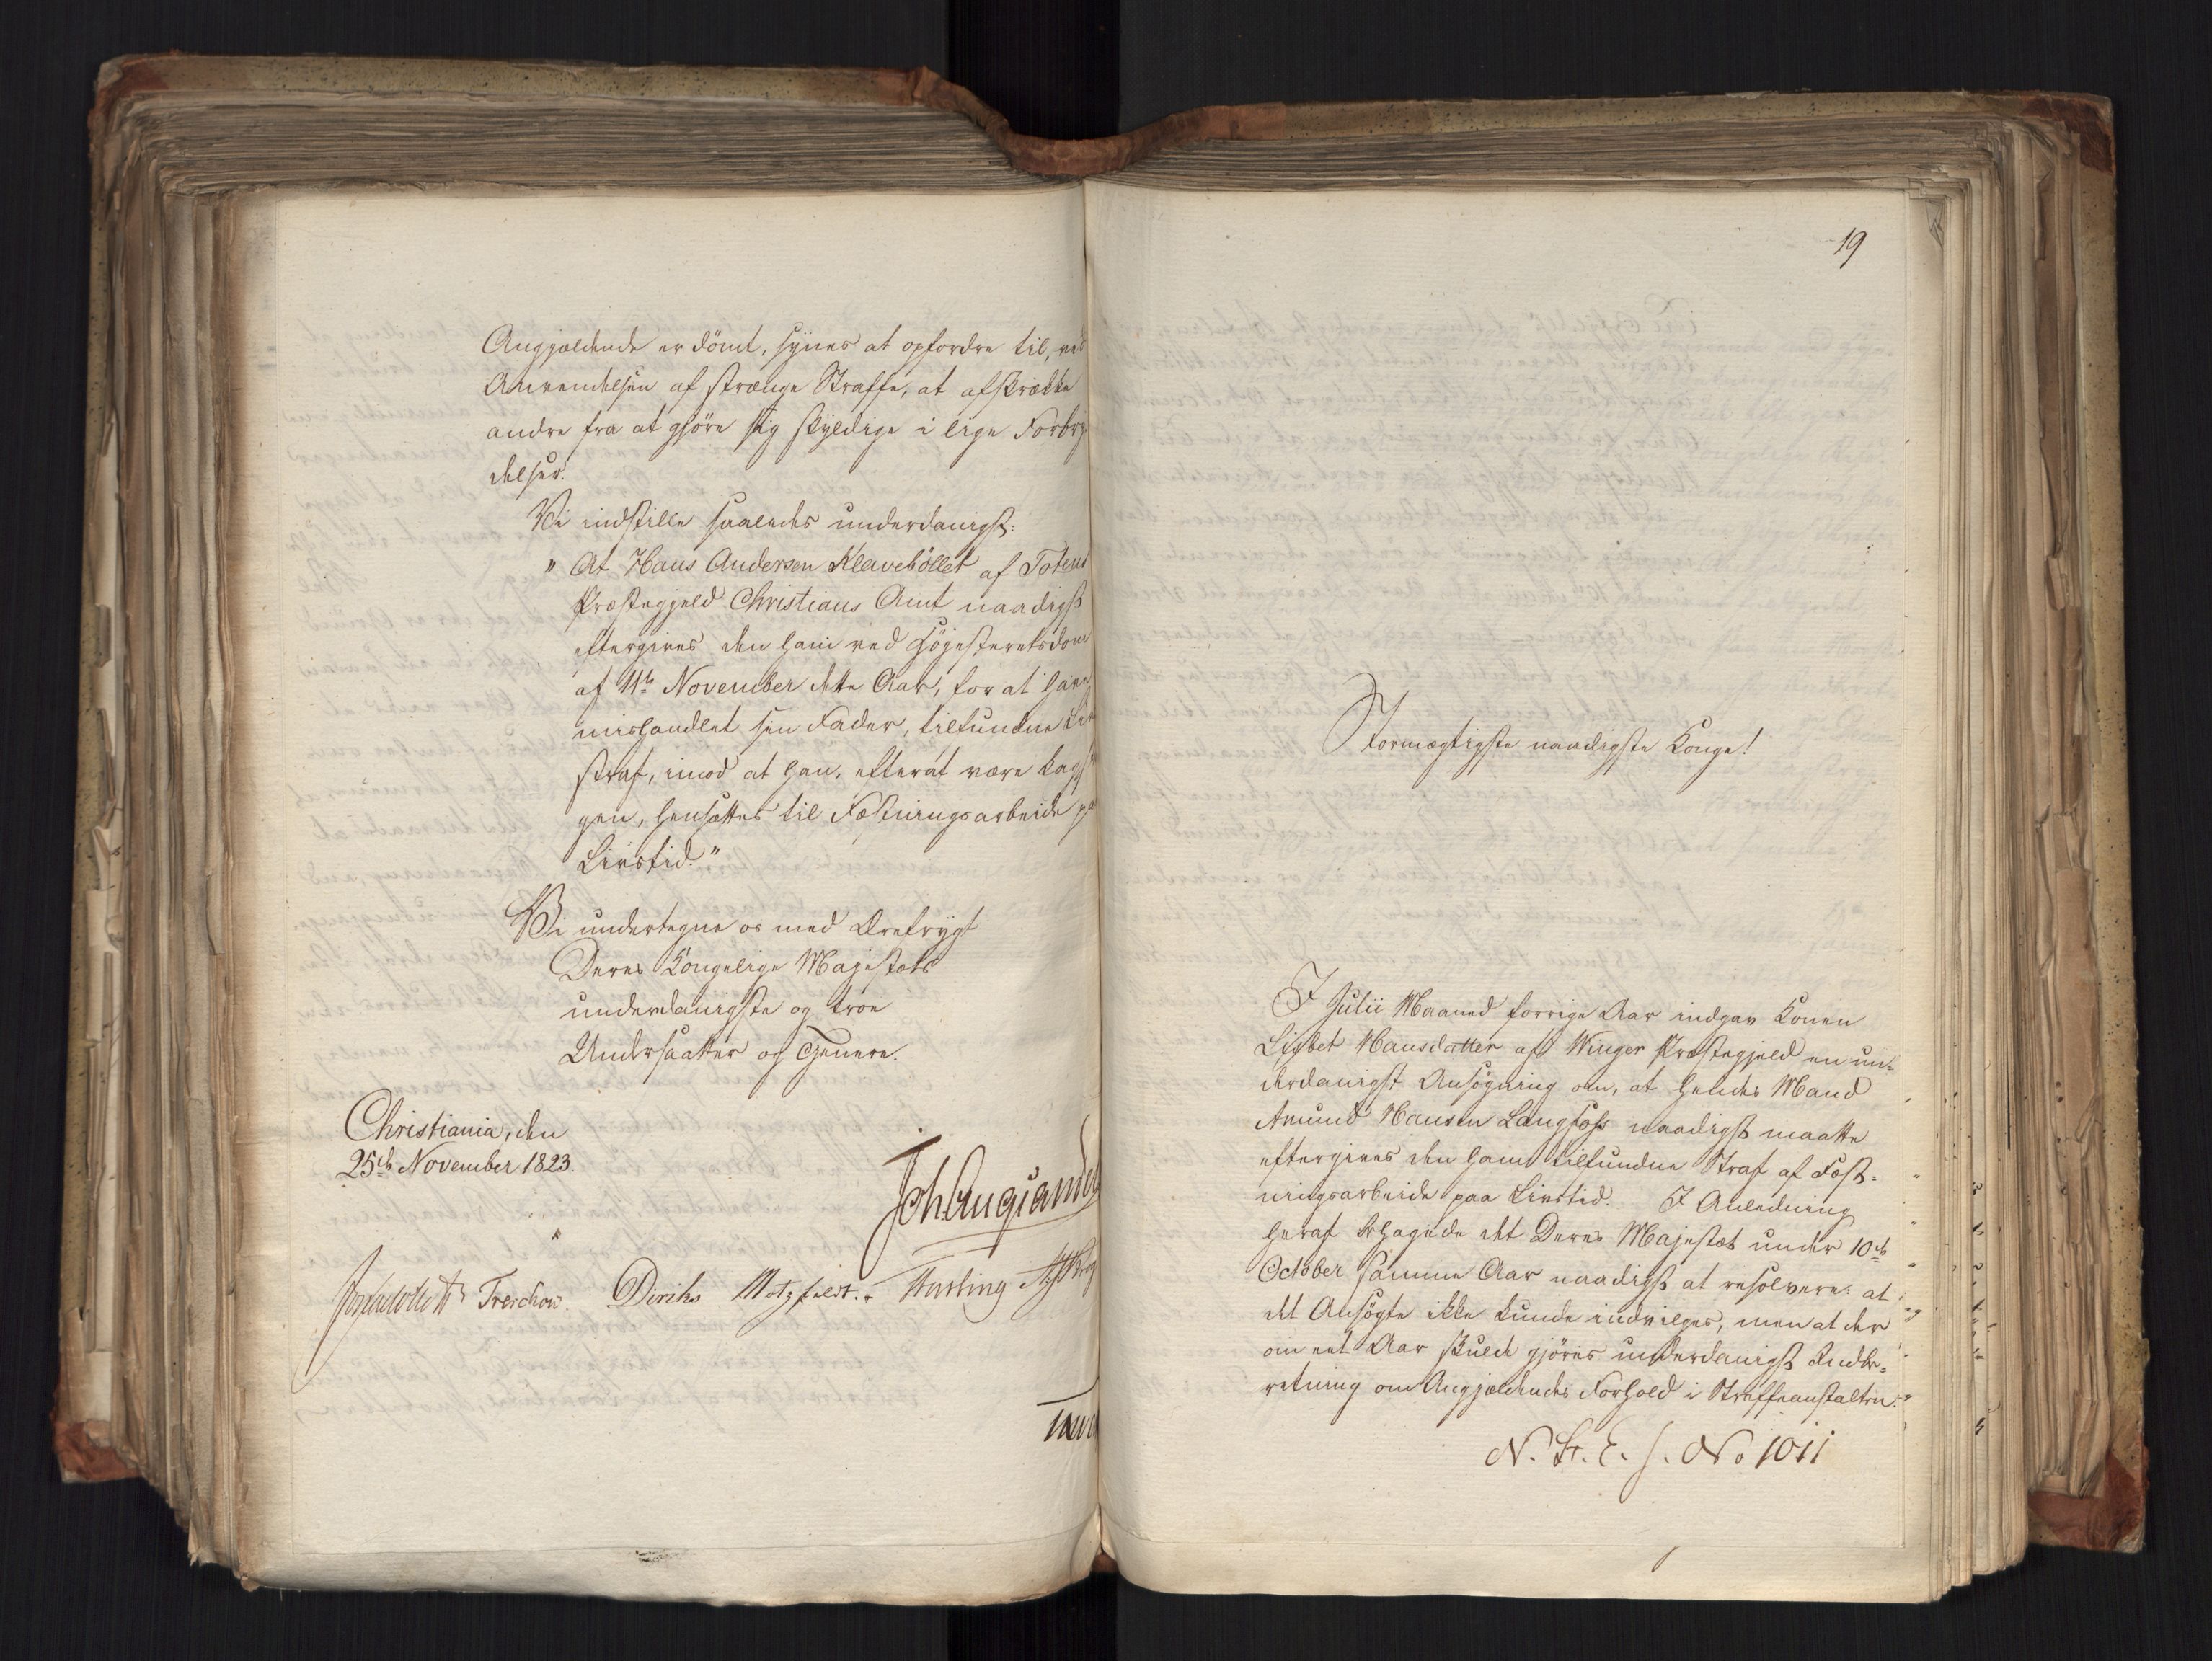 Angjældende er dömt, synes at opfordre til, ved
Anvendelsen af strænge Straffe, at afskrække
andre fra at gjöre sig skyldige i lige Forbry-
delser.
Vi indstille saaledes underdanigst:
" At Hans Andersen Klaveböllet af Totens
Præstegjeld Christians Amt naadigst
eftergives den ham ved Höjesteretsdom
af 11te November dette Aar, for at have
mishandlet sin Fader, tilfundne Livs
straf, imod at han, efterat være kagst
gen, hensættes til Fæstningsarbeide paa
Livstid."
Vi undertegne os med Ærefrygt
Deres Kongelige Majestæts
underdanigste og troe
Undersaatter og Tjenere.
Christiania, den
25de November 1823.
Treschow. Diriks Motzfeldt.
19
Stormægtigste naadigste Konge!
I Julii Maaned forrige Aar indgav Konen
Lisbet Hansdatter af Winger Præstegjeld en un-
derdanigst Ansögning om, at hendes Mand
Amund Hansen Langfoss naadigst maatte
eftergives den ham tilfundne Straf af Fæst-
ningsarbeide paa Livstid. I Anledning
heraf behagede det Deres Majestæt under 10de
October samme Aar naadigst at resolvere: at
det Ansögte ikke kunde indvilges, men at der
om eet Aar skulde gjöres underdanigst Indbe-
retning om Angjældendes Forhold i Straffeanstalten.
N. St. E. s. No 1011